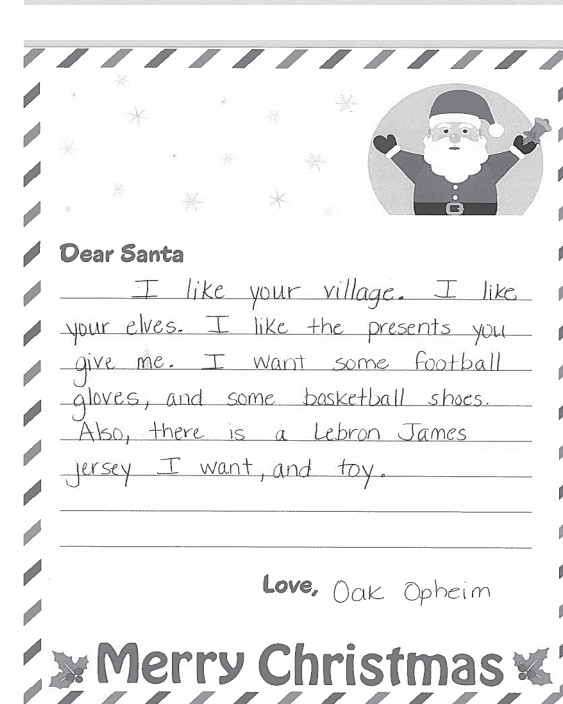 Dear Santa
I like your village. I like
your elves. I like the presents you
give me. I want some football
gloves, and some basketball shoes.
Also, there is a Lebron James
jersey I want, and toy.
Love, Oak Opheim
Merry Christmas